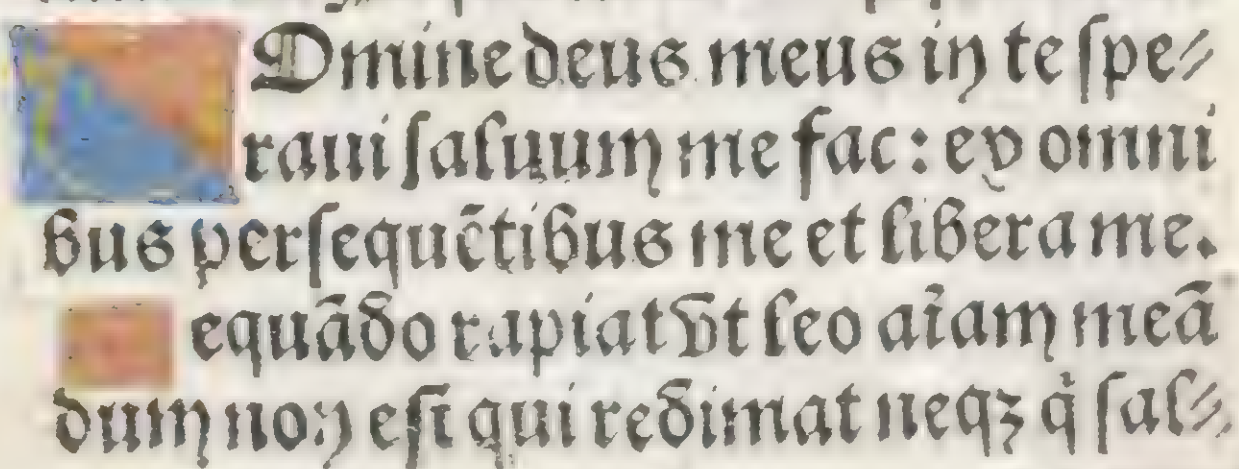 Dmine deus meus in te spe⸗
raui saluum me fac: ex omni
bus persequētibus me et libera me.
equādo rapiat vt leo aīam meā
dum non est qui redimat neqꝫ q̇ sal⸗